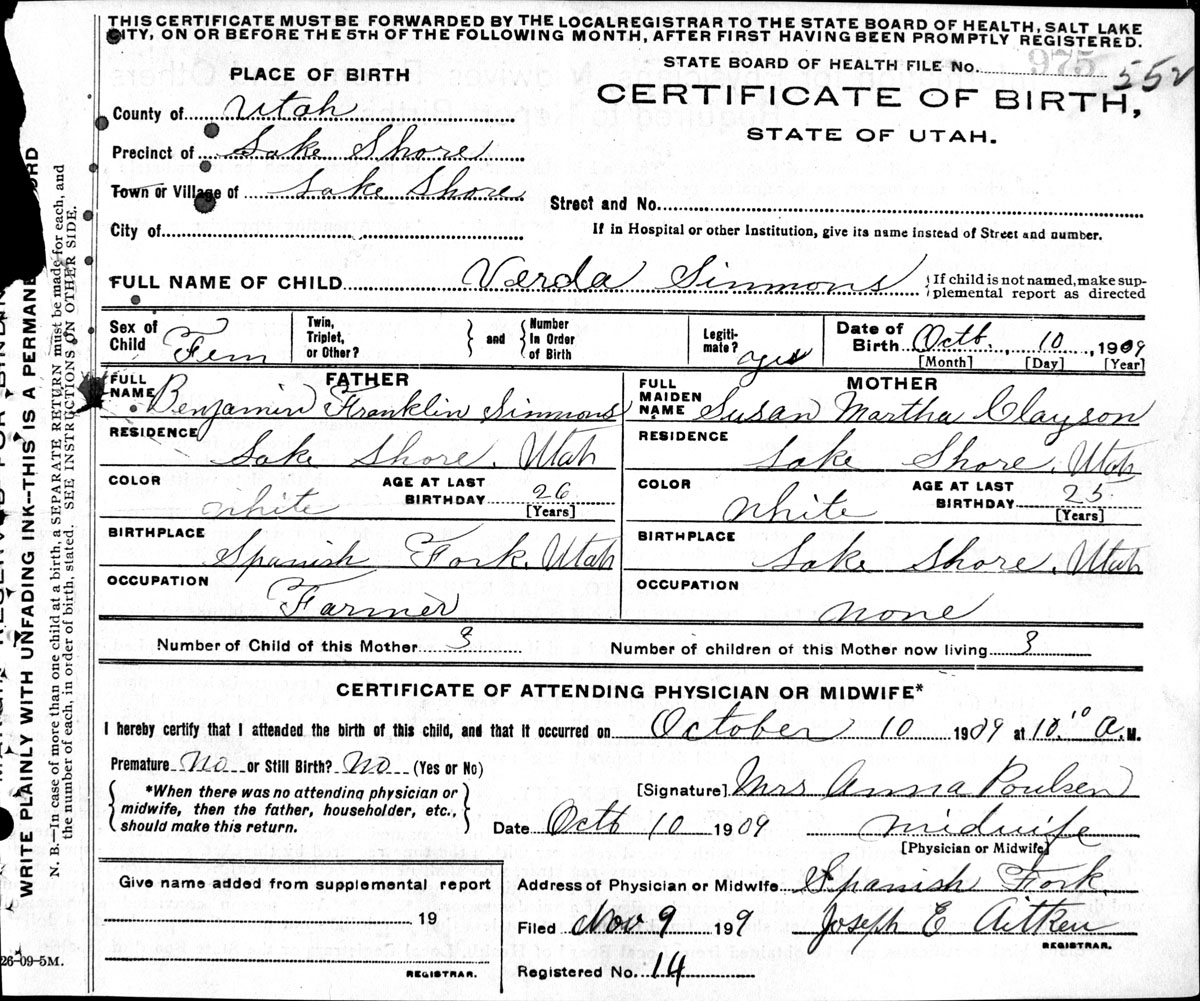 THIS CERTIFICATE MUST BE FORWARDED BY THE LOCAL REGISTRAR TO THE STATE BOARD OF HEALTH, SALT LAKE
CITY, ON OR BEFORE THE 5TH OF THE FOLLOWING MONTH, AFTER FIRST HAVING BEEN PROMPTLY REGISTERED.
STATE BOARD OF HEALTH FILE No. 975 552
PLACE OF BIRTH
CERTIFICATE OF BIRTH,
STATE OF UTAH.
County of Utah
Precinct of Lake Shore
Town or Village of Lake Shore
Street and No.
City of
If in Hospital or other Institution, give its name instead of Street and number.
FULL NAME OF CHILD Verda Simmons {If child is not named, make sup-
plemental report as directed
Sex of Child Fem
Twin, Triplet, or Other? } and { Number In Order of Birth
Legiti- mate? yes
Date of Birth Octb. 10, 1909
[Month] [Day] [Year]
FATHER
FULL NAME Benjamin Franklin Simmons
RESIDENCE Lake Shore, Utah
COLOR white AGE AT LAST BIRTHDAY 26
[Years]
BIRTHPLACE Spanish Fork, Utah
OCCUPATION Farmer
MOTHER
FULL MAIDEN NAME Susan Martha Clayson
RESIDENCE Lake Shore, Utah
COLOR white AGE AT LAST BIRTHDAY 25
[Years]
BIRTHPLACE Lake Shore, Utah
OCCUPATION none
Number of Child of this Mother 3 Number of children of this Mother now living 3
CERTIFICATE OF ATTENDING PHYSICIAN OR MIDWIFE*
I hereby certify that I attended the birth of this child, and that it occurred on October 10 1909 at 10:10 A.M.
Premature No or Still Birth? No (Yes or No)
*When there was no attending physician or
midwife, then the father, householder, etc.,
should make this return.
[Signature] Mrs Anna Poulsen
Date Octb 10 1909 midwife
[Physician or Midwife]
Give name added from supplemental report
19
REGISTRAR.
Address of Physician or Midwife Spanish Fork
Filed Nov 9 199 Joseph E Aitken
REGISTRAR.
Registered No. 14
WRITE PLAINLY WITH UNFADING INK--THIS IS A PERMANE
N. B.--In case of more than one child at a birth, a SEPARATE RETURN must be made for each, and
the number of each, in order of birth, stated. SEE INSTRUCTIONS ON OTHER SIDE.
26-09-5M.